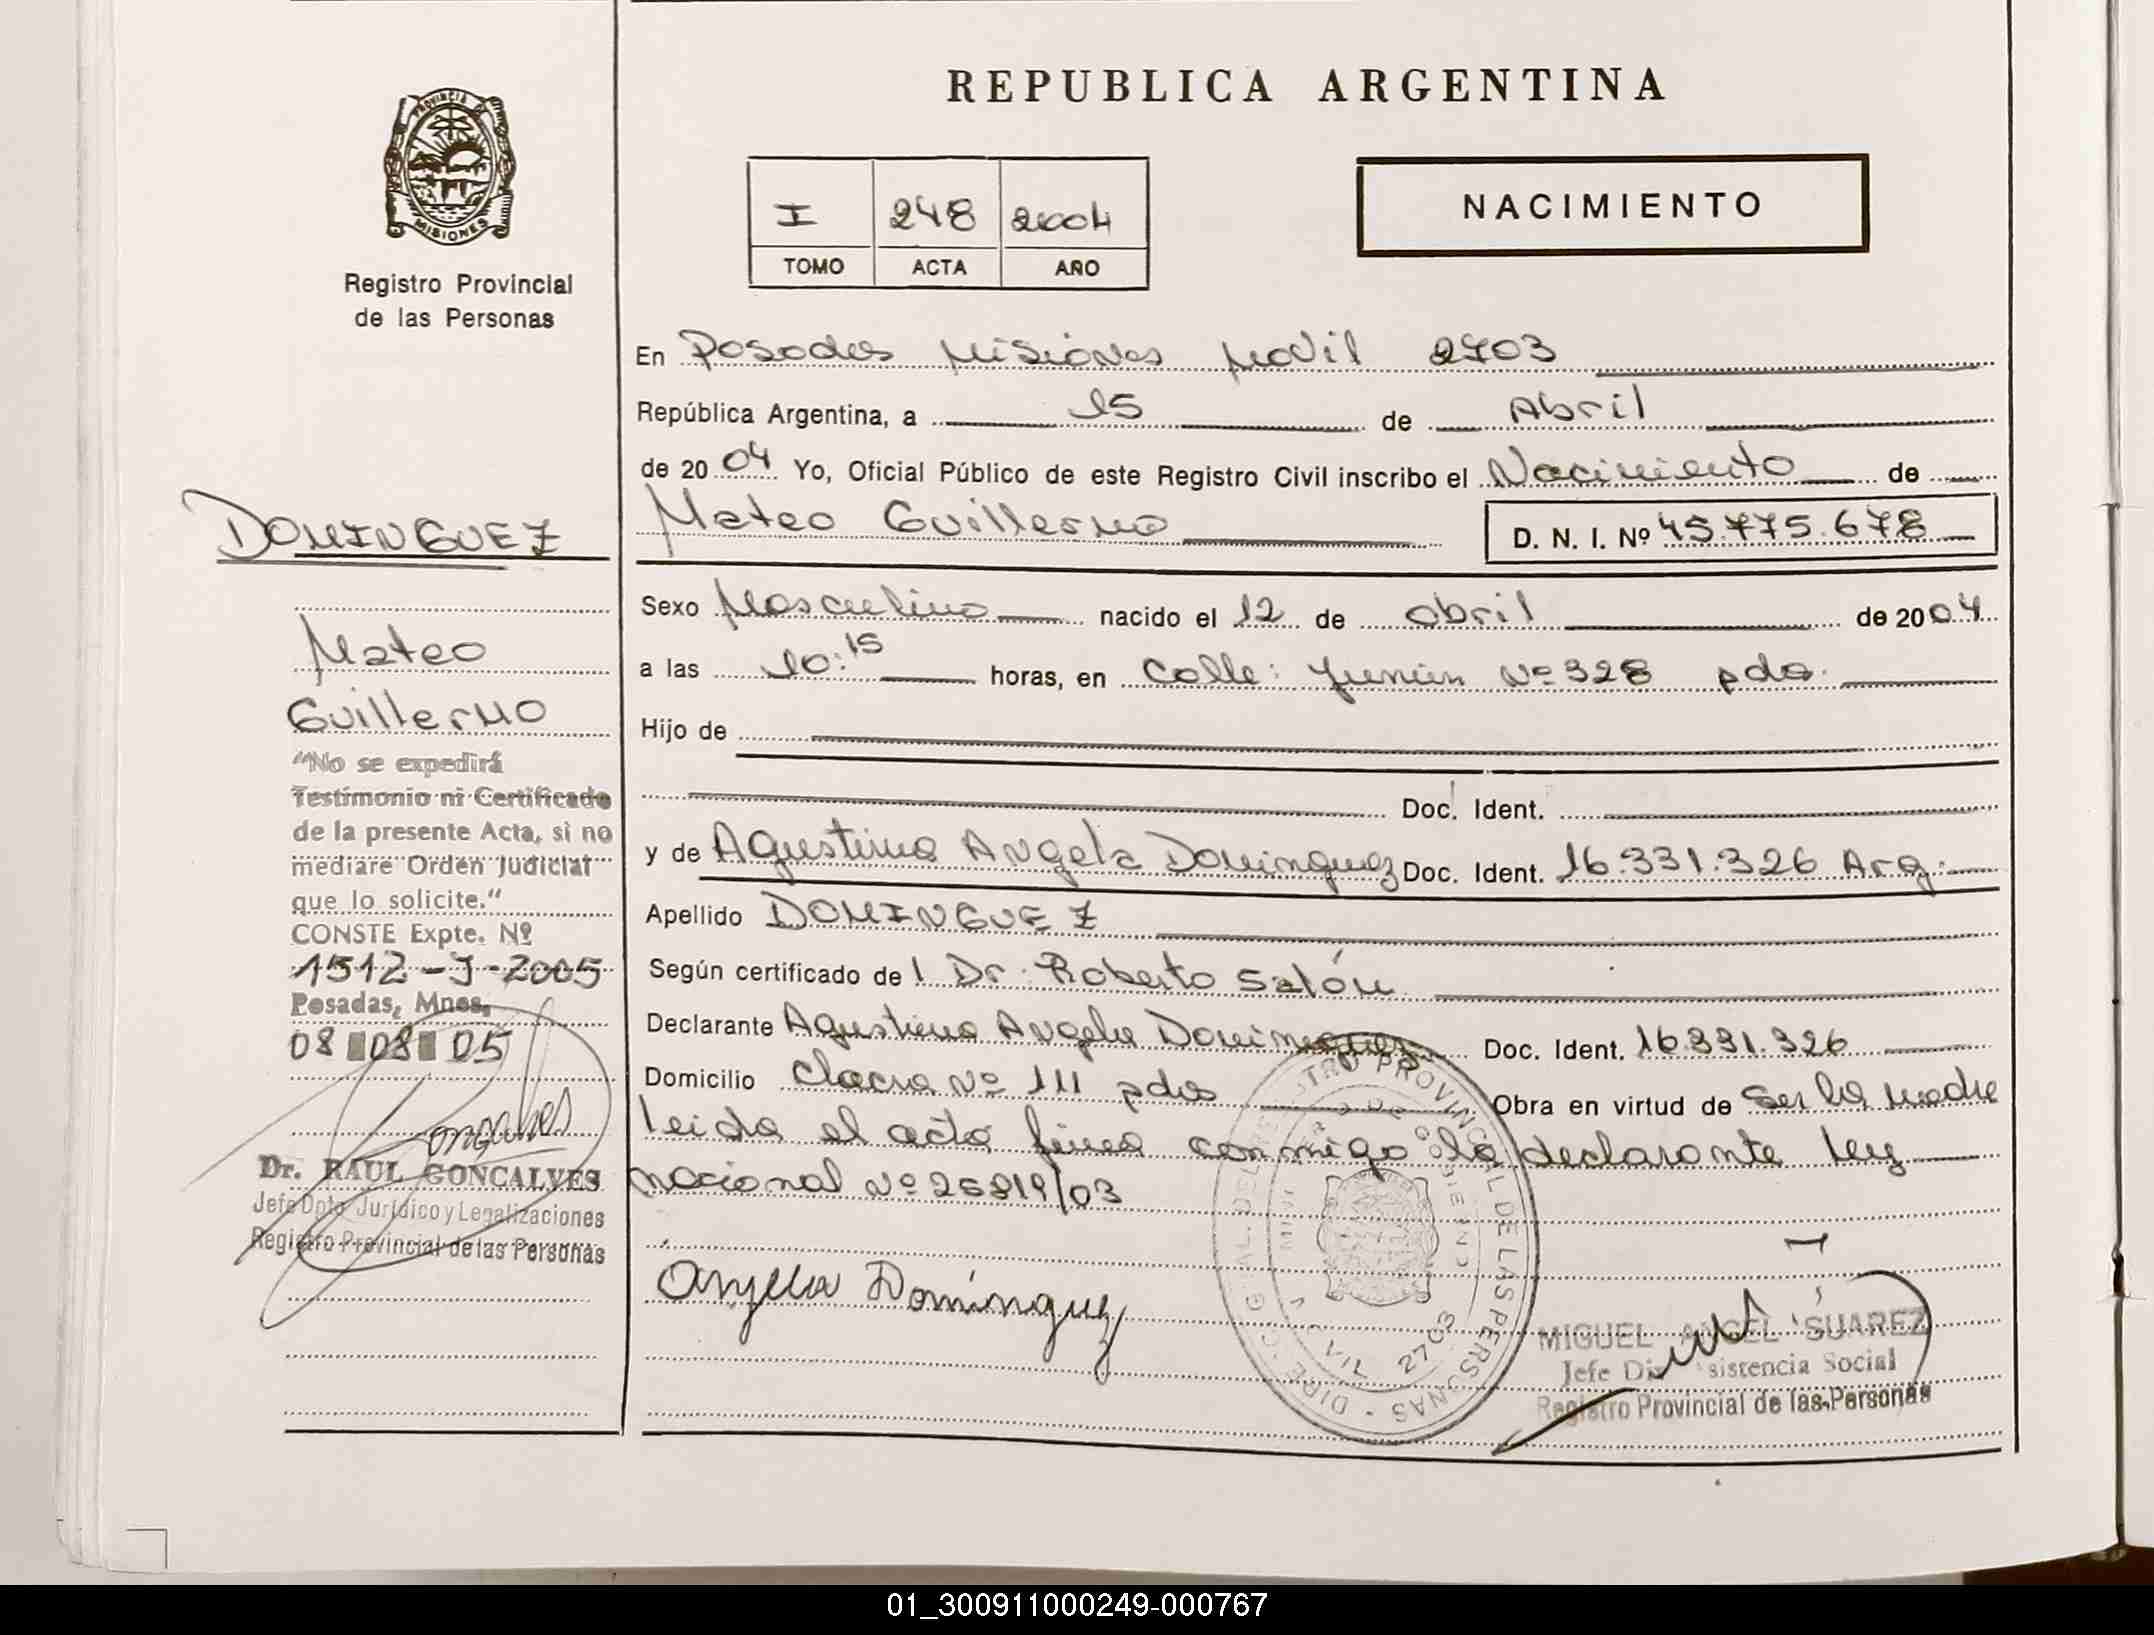 REPUBLICA ARGENTINA
PROVINCIA DE
MISIONES
Registro Provincial
de las Personas
I 248 2004
TOMO ACTA AÑO
NACIMIENTO
En Posadas Misiones Movil 2703
República Argentina, a 15 de Abril
de 2004 Yo, Oficial Público de este Registro Civil inscribo el Nacimiento de
Mateo Guillermo D. N. I. Nº 45.775.678
Sexo Masculino nacido el 12 de abril de 2004
a las 10:15 horas, en Calle: Junín Nº 328 pdas.
Hijo de
Doc. Ident.
y de Agustina Angela Dominguez Doc. Ident. 16.331.326 Arg.
Apellido DOMINGUEZ
Según certificado de l Dr. Roberto Salóm
Declarante Agustina Angela Dominguez Doc. Ident. 16.331.326
Domicilio Chacra Nº 111 pdas Obra en virtud de Ser la madre
leida el acta firma conmigo la declarante ley
nacional Nº 25819/03
Angela Dominguez
MIGUEL ANGEL SUAREZ
Jefe sistencia Social
Registro Provincial de las Personas
2703
DOMINGUEZ
Mateo
Guillermo
"No se expedirá
Testimonio ni Certificado
de la presente Acta, si no
mediare Orden Judicial
que lo solicite."
CONSTE Expte. Nº
1512-J-2005
Posadas, Mnes,
08 08 05
Goncalves
Dr. RAUL GONCALVES
Jefe Dpto Jurídico y Legalizaciones
Registro Provincial de las Personas
01_300911000249-000767